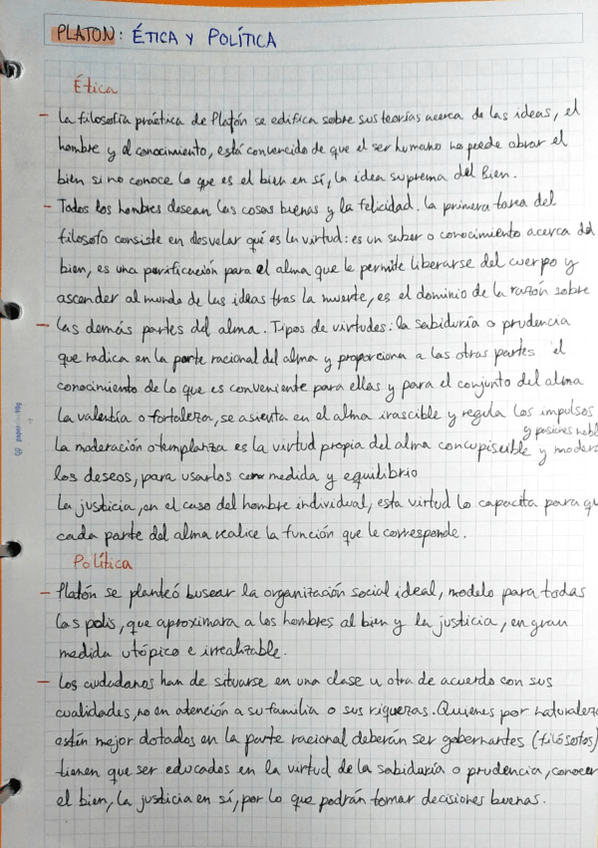 PLATON: ÉTICA Y POLÍTICA
Ética
- La filosofía práctica de Platón se edifica sobre sus teorías acerca de las ideas, el
hombre y el conocimiento, está convencido de que el ser humano no puede obrar el
bien si no conoce lo que es el bien en sí, la idea suprema del Bien.
- Todos los hombres desean las cosas buenas y la felicidad. La primera tarea del
filósofo consiste en desvelar qué es la virtud: es un saber o conocimiento acerca del
bien, es una purificación para el alma que le permite liberarse del cuerpo y
ascender al mundo de las ideas tras la muerte, es el dominio de la razón sobre
- las demás partes del alma. Tipos de virtudes: la sabiduría o prudencia
que radica en la parte racional del alma y proporciona a las otras partes el
conocimiento de lo que es conveniente para ellas y para el conjunto del alma
La valentía o fortaleza, se asienta en el alma irascible y regula los impulsos
y pasiones nobl
La moderación o templanza es la virtud propia del alma concupiscible y modera
los deseos, para usarlos con medida y equilibrio
La justicia, en el caso del hombre individual, esta virtud lo capacita para qu
cada parte del alma realice la función que le corresponde.
Política
- Platón se planteó buscar la organización social ideal, modelo para todas
las polis, que aproximara a los hombres al bien y la justicia, en gran
medida utópico e irrealizable.
- Los ciudadanos han de situarse en una clase u otra de acuerdo con sus
cualidades, no en atención a su familia o sus riquezas. Quienes por naturaleza
están mejor dotados en la parte racional deberán ser gobernantes (filósofos)
tienen que ser educados en la virtud de la sabiduría o prudencia, conocer
el bien, la justicia en sí, por lo que podrán tomar decisiones buenas.